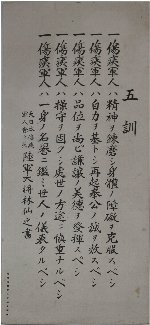 五訓
一傷痍軍人ハ精神ヲ錬磨シ身體ノ障礙ヲ克服スベシ
一傷痍軍人ハ自力ヲ基トシ再起奉公ノ誠ヲ效スベシ
一傷痍軍人ハ品位ヲ尚ビ謙讓ノ美徳ヲ發揮スベシ
一傷痍軍人ハ操守ヲ固クシ處世ノ方途ニ愼重ナルベシ
一傷痍軍人ハ一身ノ名譽ニ鑑ミ世人ノ儀表タルベシ
大日本傷痍軍人會總裁
陸軍大將林仙之書